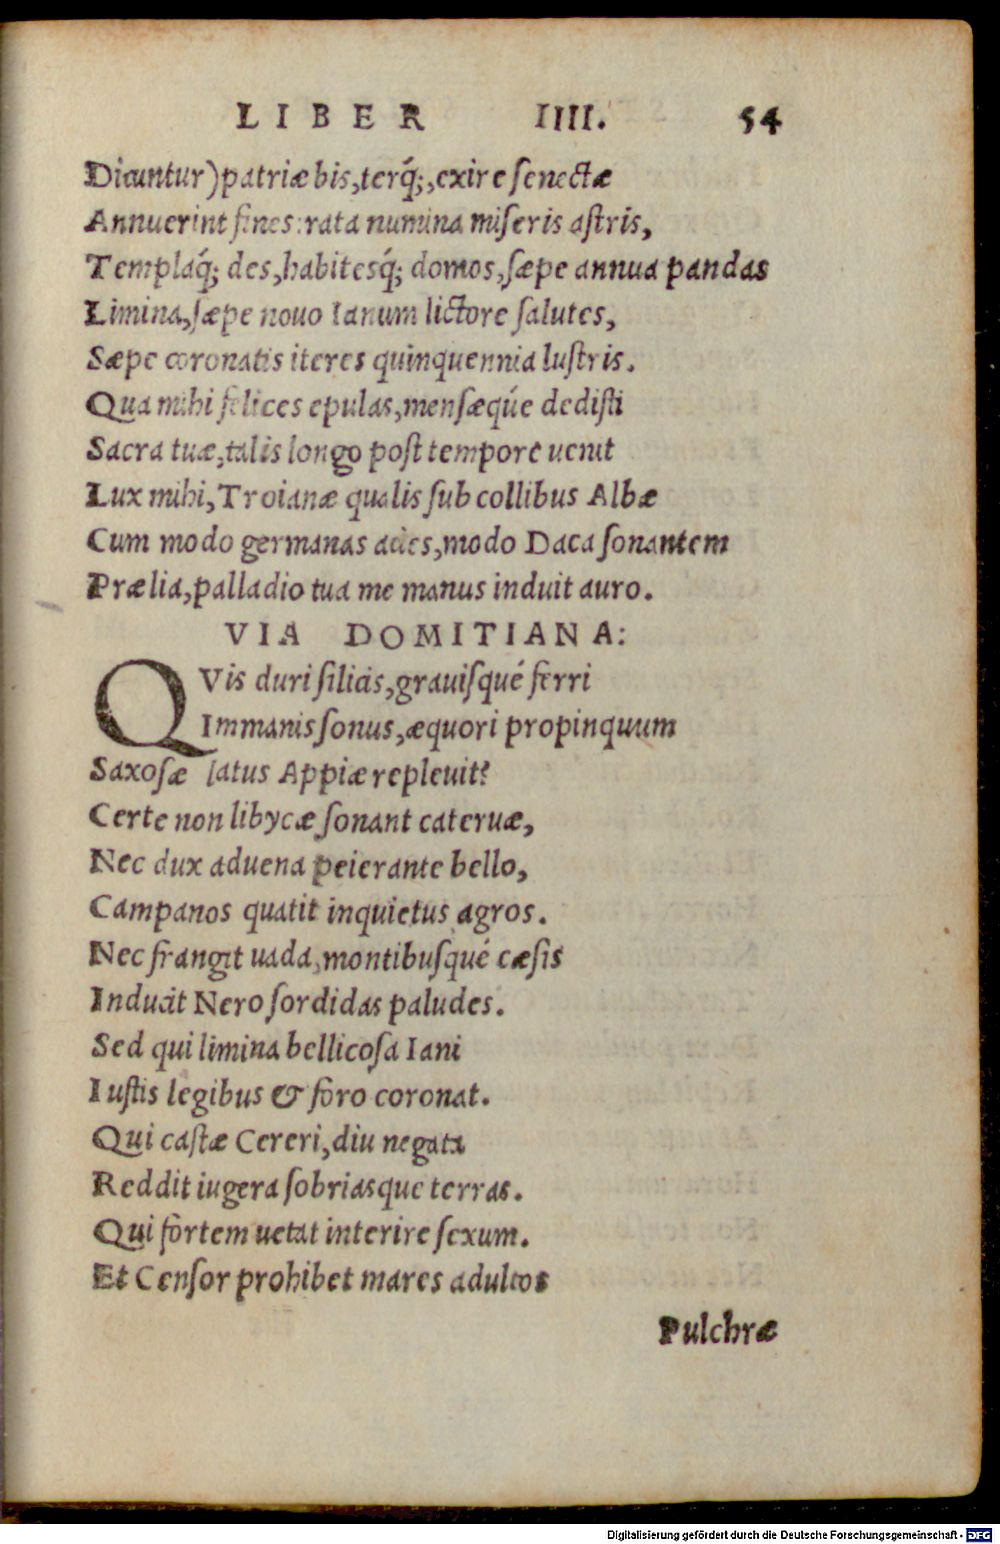 LIBER IIII. 54
Dicuntur) patriæ bis, terq́;, exire senectæ
Annuerint fines: rata numina miseris astris,
Templaq́; des, habitesq́; domos, sæpe annua pandas
Limina, sæpe nouo Ianum lictore salutes,
Sæpe coronatis iteres quinquennia lustris.
Qua mihi felices epulas, mensæqúe dedisti
Sacra tuæ, talis longo post tempore uenit
Lux mihi, Troianæ qualis sub collibus Albæ
Cum modo germanas acies, modo Daca sonantem
Prælia, palladio tua me manus induit auro.
VIA DOMITIANA:
QVis duri silicis, grauisqué ferri
Immanis sonus, æquori propinquum
Saxosæ latus Appiæ repleuit?
Certe non libycæ sonant cateruæ,
Nec dux aduena peierante bello,
Campanos quatit inquietus agros.
Nec frangit uada, montibusqué cæsis
Inducit Nero sordidas paludes.
Sed qui limina bellicosa Iani
Iustis legibus & foro coronat.
Qui castæ Cereri, diu negata
Reddit iugera sobriasque terras.
Qui fortem uetat interire sexum.
Et Censor prohibet mares adultos
Pulchræ
Digitalisierung gefördert durch die Deutsche Forschungsgemeinschaft - DFG